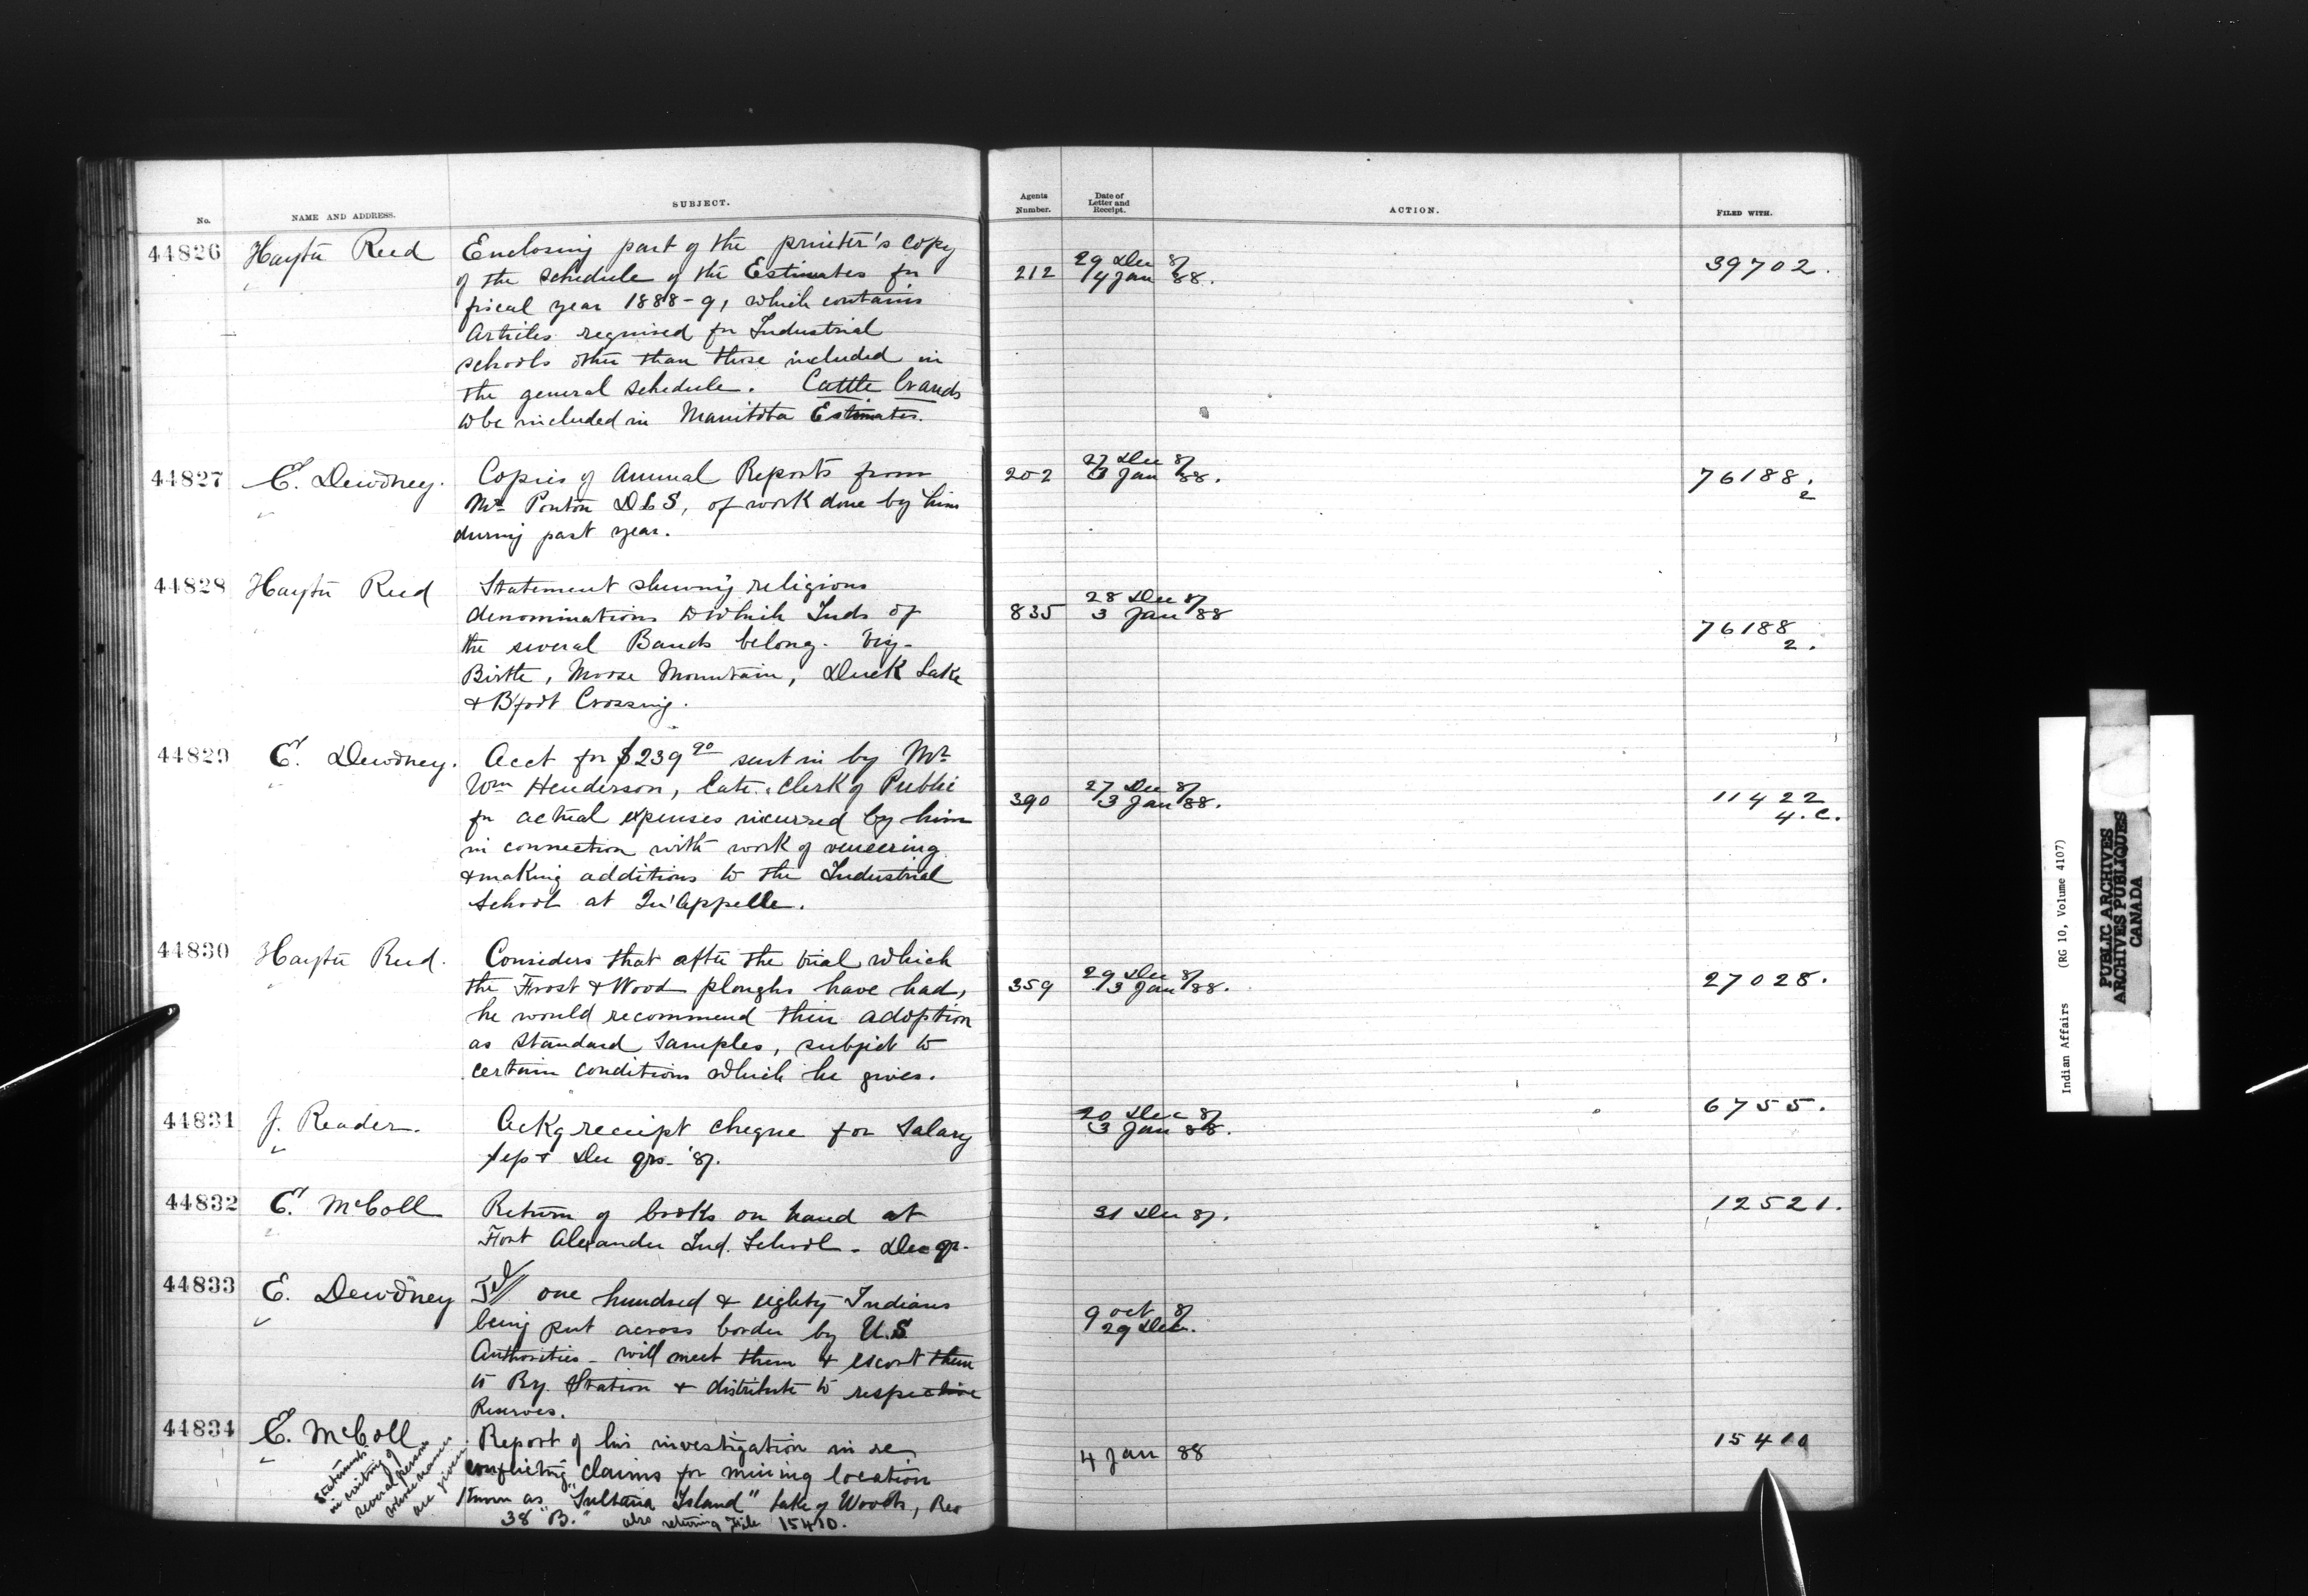 No. NAME AND ADDRESS. SUBJECT. Agents Number. Date of Letter and Receipt. ACTION. FILED WITH.
44826 Hayter Reed Enclosing part of the printer's copy
of the schedule of the Estimates for 212 29 Dec 87 39702.
fiscal year 1888-9, which contains 4 Jan 88.
Articles required for Industrial
schools other than those included in
the general schedule. Cattle brands
to be included in Manitoba Estimates.
44827 E. Dewdney. Copies of Annual Reports from 202 27 Dec 87 76188.
Mr Ponton DLS, of work done by him 3 Jan 88. 2
during past year.
44828 Hayter Reed Statement shewing religious
denominations to which Inds of 835 28 Dec 87
the several Bands belong. viz- 3 Jan 88 76188
Birtle, Moose Mountain, Duck Lake 2.
& B'foot Crossing.
44829 E. Dewdney. Acct for $239 90 sent in by Mr
Wm Henderson, late Clerk of Public 390 27 Dec 87 11422
for actual expenses incurred by him 3 Jan 88. 4.C.
in connection with work of veneering
& making additions to the Industrial
School at Qu'Appelle.
44830 Hayter Reed. Considers that after the trial which
the Frost & Wood ploughs have had, 359 29 Dec 87 27028.
he would recommend their adoption 3 Jan 88.
as standard samples, subject to
certain conditions which he gives.
44831 J. Reader. Ackg receipt cheque for Salary 20 Dec 87 6755.
Sept & Dec qrs. '87. 3 Jan 88.
44832 E. McColl Return of books on hand at 31 Dec 87. 12521.
Fort Alexander Ind. School - Dec qr.
44833 E. Dewdney one hundred & eighty Indians
being put across border by U.S 9 Oct 87
Authorities - will meet them & escort them 29 Dec.
to Ry. Station & distribute to respective
Reserves.
44834 E. McColl Report of his investigation in re 15410
conflicting claims for mining location 4 Jan 88
known as "Sultana Island" Lake of Woods, Res
38 "B." also returning File 15410.
Statements
in writing of
several persons
whose names
are given
Indian Affairs (RG 10, Volume 4107)
PUBLIC ARCHIVES
ARCHIVES PUBLIQUES
CANADA